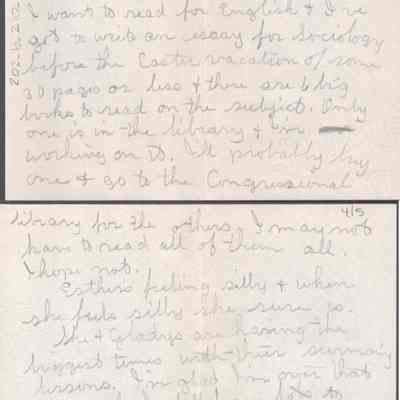 I want to read for English & I've
got to write an essay for Sociology
before the Easter vacation of some
30 pages or less & there are 6 big
books to read on the subject. Only
one is in the library & I'm
working on it. I'll probably buy
one & go to the Congressional
4/5
library for the others. I may not
have to read all of them all.
I hope not.
Esther's feeling silly & when
she feels silly she sure is.
She & Gladys are having the
biggest times with their swimming
lessons. I'm glad I'm over that